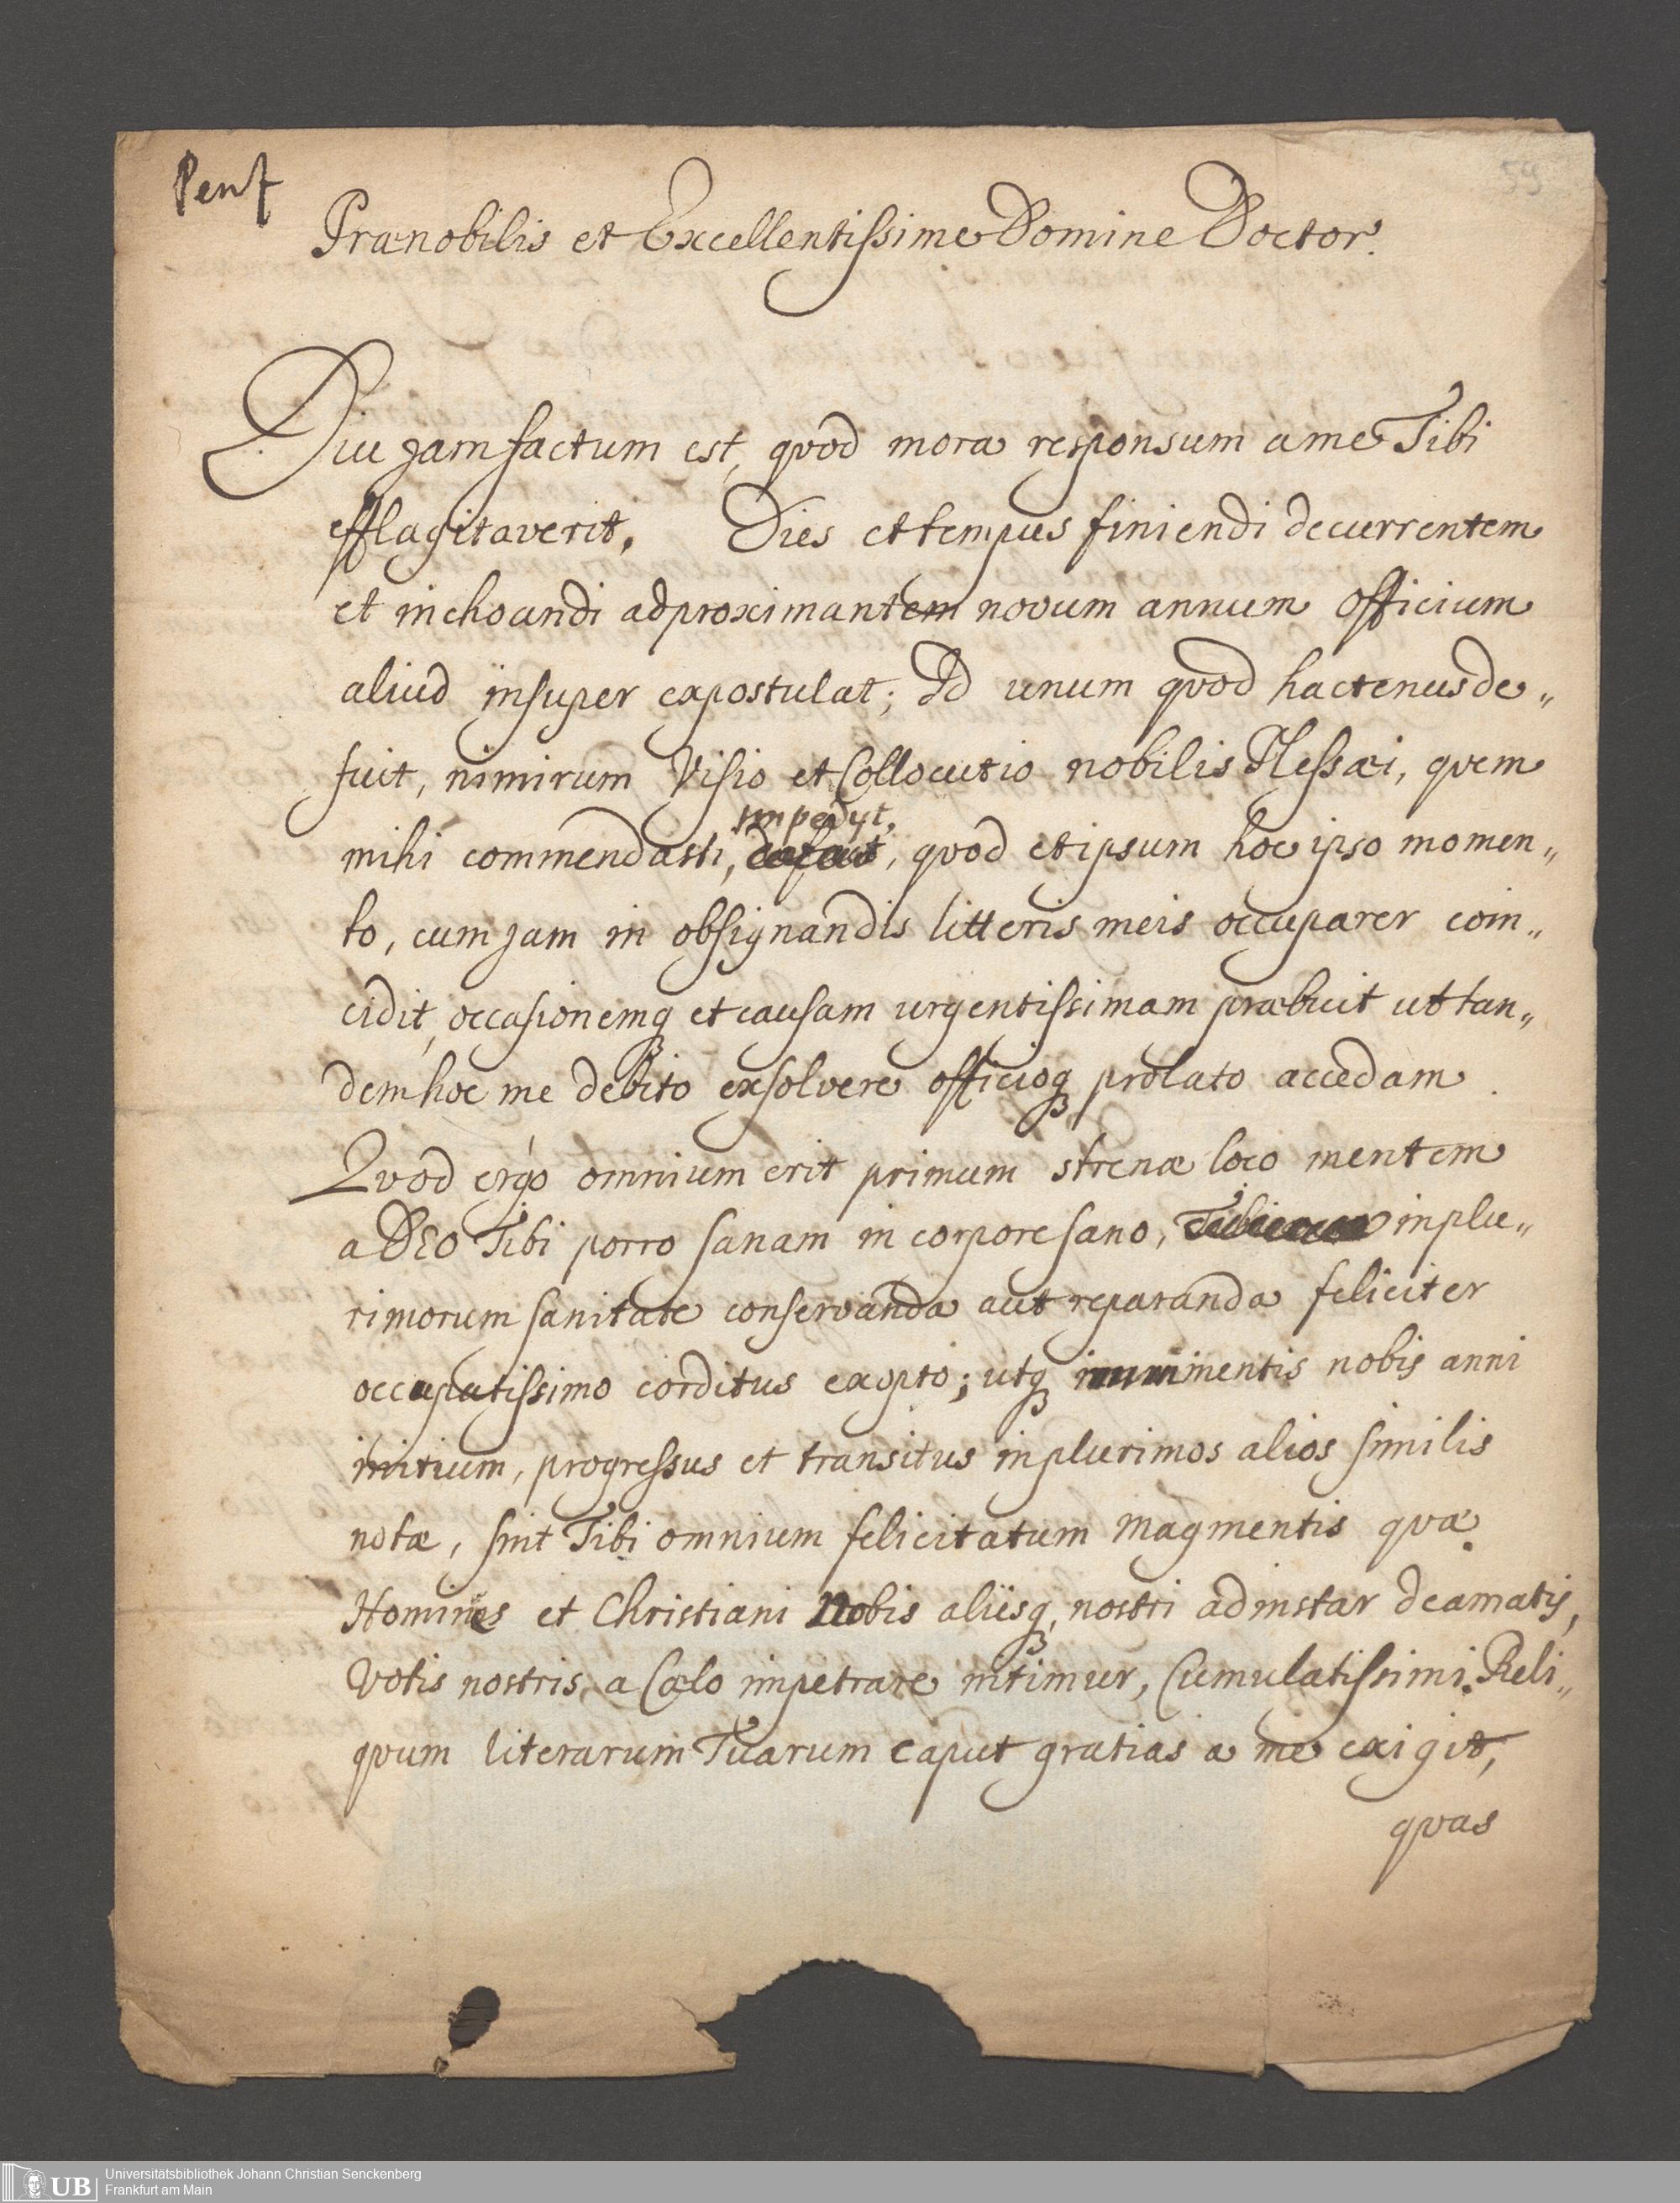 Penf
59
Prænobilis et Excellentissime Domine Doctor.
Diu jam factum est, qvod mora responsum a me Tibi
efflagitaverit. Dies et tempus finiendi decurrentem
et inchoandi adproximantem novum annum officium
aliud insuper expostulat; Id unum qvod hactenus de„
fuit, nimirum Visio et Collocutio nobilis Hessæi, qvem
impedyt,
mihi commendasti, , qvod et ipsum hoc ipso momen„
to, cum jam in obsignandis litteris meis occuparer coin„
cidit, occasionemq et causam urgentissimam præbuit ut tan„
dem hoc me debito exsolvere officioq prolato accedam.
Qvod ergò omnium erit primum strenæ loco mentem
a DEO Tibi porro sanam in corpore sano, in plu„
rimorum sanitate conservanda aut reparanda feliciter
occupatissimo corditus exopto; utq imminentis nobis anni
initium, progressus et transitus in plurimos alios similis
notæ, sint Tibi omnium felicitatum magmentis qvæ
Homines et Christiani Nobis aliisq nostri ad instar deamatis,
Votis nostris a Cœlo impetrare nitimur, Cumulatissimi. Reli„
qvum literarum Tuarum caput gratias a me exigit,
qvas
UB
Universitätsbibliothek Johann Christian Senckenberg
Frankfurt am Main